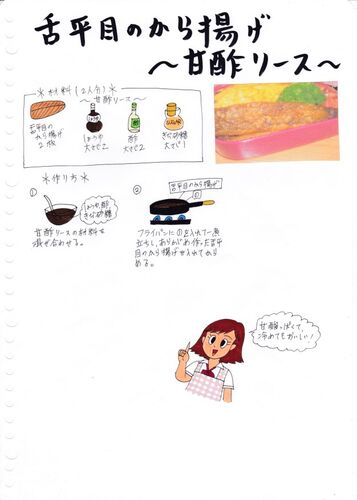 舌平目のから揚げ
～甘酢リース～
＊材料（2人分）＊
～甘酢リース～
舌平目の
から揚げ
2枚
しょうゆ
大さじ2
酢
大さじ2
きび砂糖
大さじ1
＊作り方＊
①
しょうゆ、酢
きび砂糖
甘酢リースの材料を
混ぜ合わせる。
②
舌平目のから揚げ
①
フライパンに①を入れて一煮
立ちし、あらかじめ作った舌平
目のから揚げを入れてから
める。
甘酸っぱくて、
冷めてもおいしい！